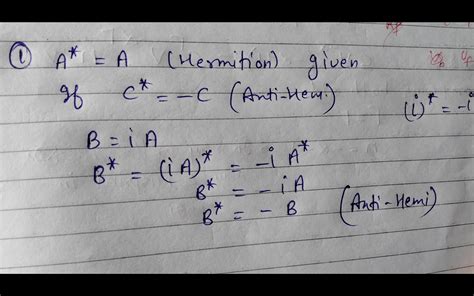 ① A* = A (Hermition) given
If C* = -C (Anti-Hem.)
(i)* = -i
B = i A
B* = (i A)* = -i A*
B* = -i A
B* = - B (Anti-Hemi)